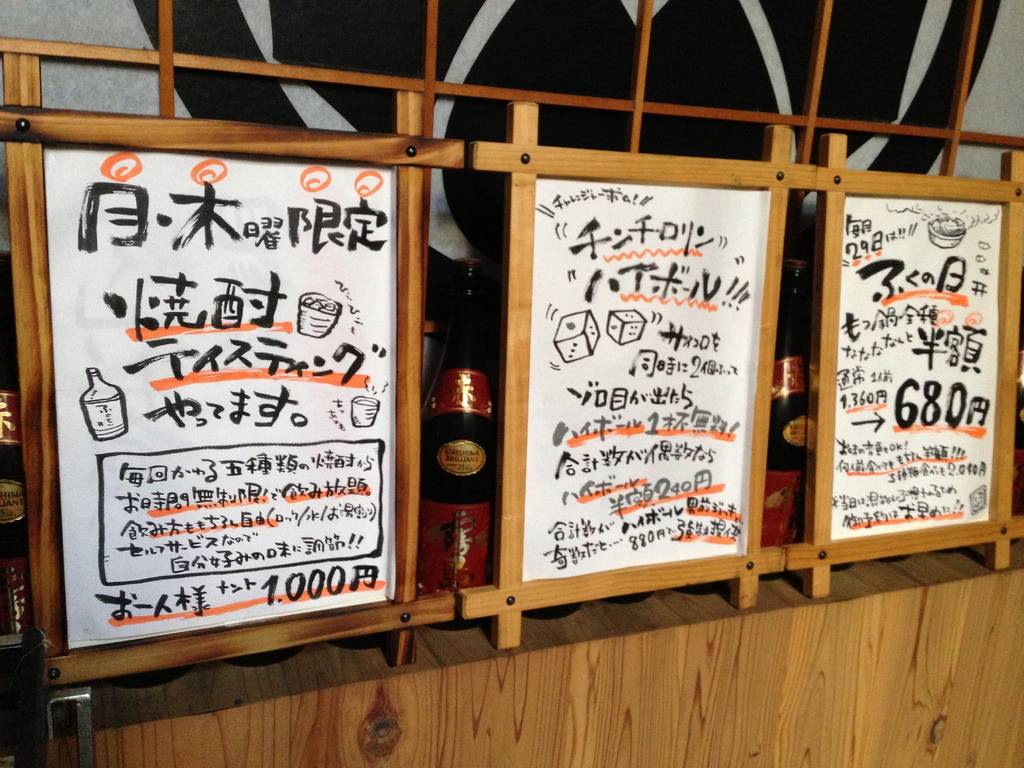 月・木曜限定
焼酎
テイスティング
やってます。
毎回かわる五種類の焼酎から
お時間無制限で飲み放題。
飲み方ももちろん自由(ロック/水/お湯割り)
セルフサービスなので
自分好みの味に調節!!
お一人様 ナント 1.000円
チャレンジャー求ム!
チンチロリン
ハイボール!!!
サイコロを
同時に2個ふって
ゾロ目が出たら
ハイボール1杯無料!
合計数が偶数なら
ハイボール
半額240円
合計数が
奇数だと…
880円で強制
毎月
29日は!!
ふくの日
もつ鍋全種
なななななんと
半額
通常 1人前
1.360円
→ 680円
KIRISHIMA
BRILLIANT